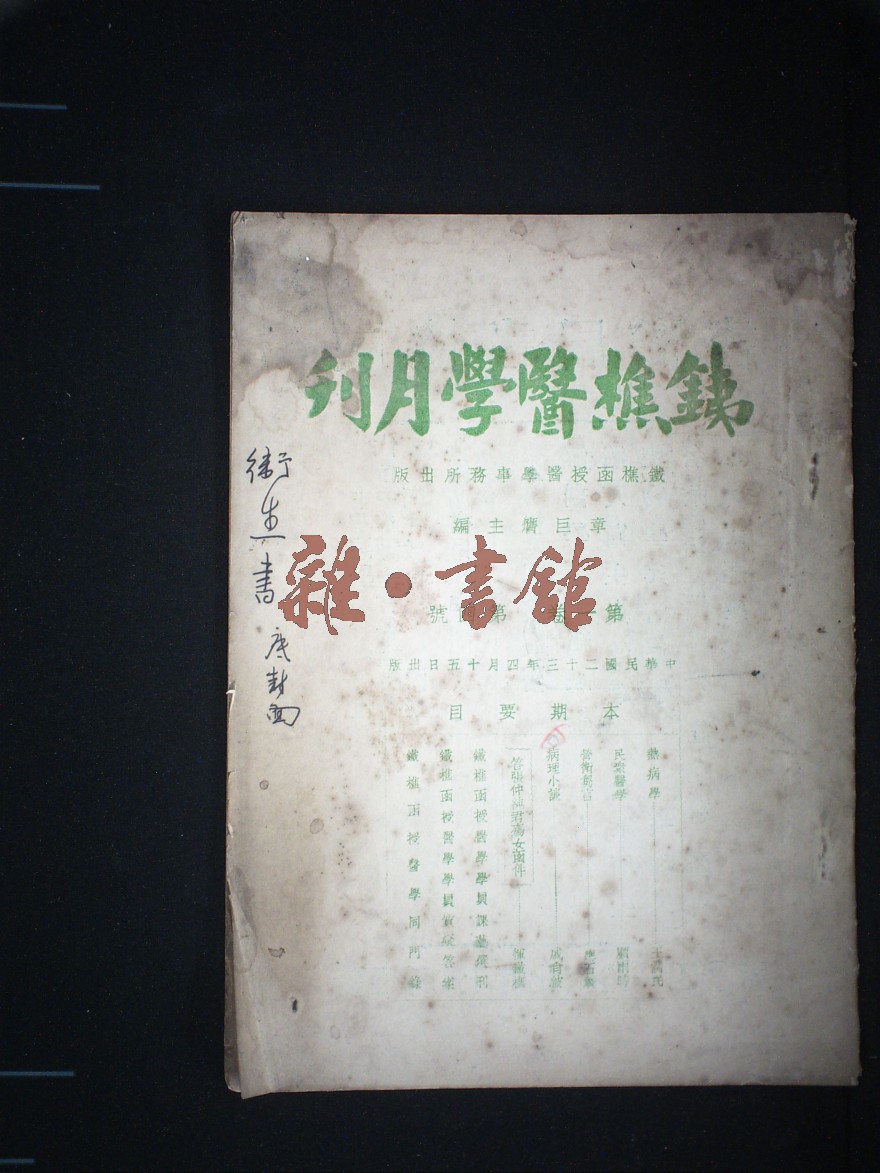 鐵樵醫學月刊
鐵樵函授醫學事務所出版
章巨膺主編
第一卷 第四號
中華民國二十三年四月十五日出版
本期要目
熱病學
民眾醫學
病理小談
答張仲純君為女函件 惲鐵樵
鐵樵函授醫學學員課藝選刊
鐵樵函授醫學學員質疑答案
鐵樵函授醫學同門錄
衛生書
底封面
雜·書館